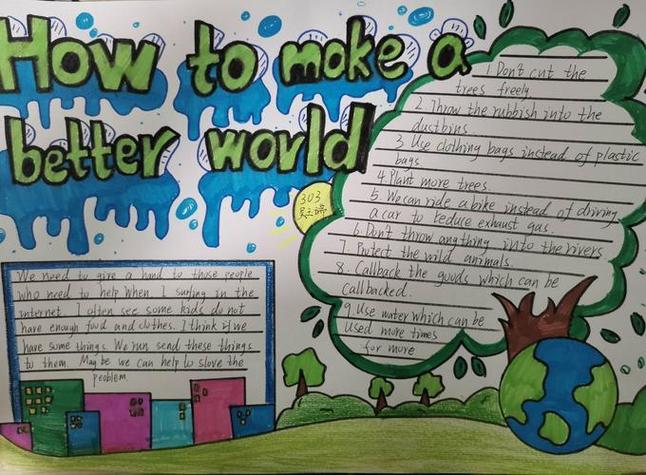 How to make a
better world
1. Don't cut the
trees freely
2. Throw the rubbish into the
dustbins
3 Use clothing bags instead of plastic
bags
4. Plant more trees
5. We can ride a bike instead of driving
a car to reduce exhaust gas.
6. Don't throw anything into the rivers
7. Protect the wild animals.
8. Callback the goods which can be
callbacked.
9 Use water which can be
Used more times
for more
303
We need to give a hand to those people
who need to help When I surfing in the
internet. I often see some kids do not
have enough food and clothes. I think if we
have some things. We can send these things
to them. May be we can help to slove the
problem.